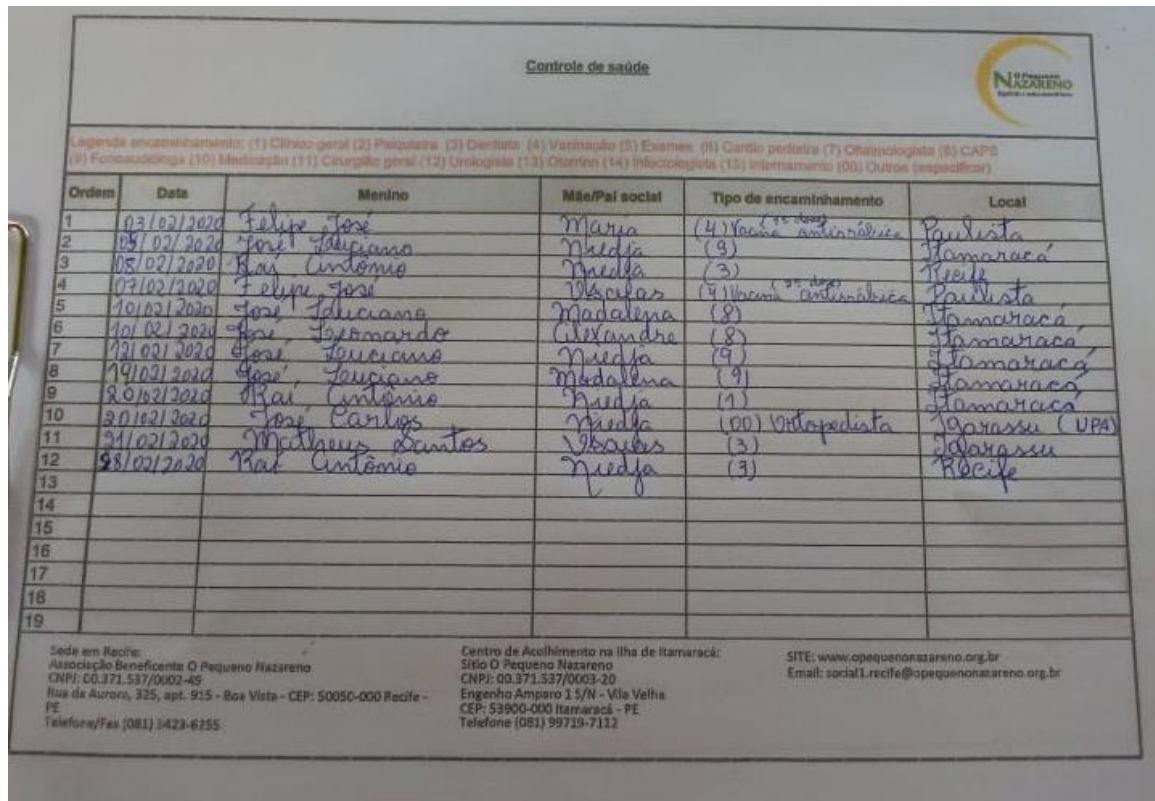 Controle de saúde
O Pequeno
NAZARENO
Legenda encaminhamento: (1) Clínico geral (2) Psiquiatra (3) Dentista (4) Vacinação (5) Exames (6) Cardio pediatra (7) Oftalmologista (8) CAPS
(9) Fonoaudióloga (10) Medicação (11) Cirurgião geral (12) Urologista (13) Otorrino (14) Infectologista (15) Internamento (00) Outros (especificar)
Ordem Data Menino Mãe/Pai social Tipo de encaminhamento Local
1 03/02/2020 Felipe José Maria (4) Vacina antirrábica (1ª dose) Paulista
2 05/02/2020 José Luciano Niedja (9) Itamaracá
3 08/02/2020 Kaí Antônio Niedja (3) Recife
4 07/02/2020 Felipe José Isaías (4) Vacina antirrábica Paulista
5 10/02/2020 José Luciano Madalena (8) Itamaracá
6 10/02/2020 José Leonardo Alexandre (8) Itamaracá
7 12/02/2020 José Luciano Niedja (9) Itamaracá
8 19/02/2020 José Luciano Madalena (9) Itamaracá
9 20/02/2020 Kaí Antônio Niedja (1) Itamaracá
10 20/02/2020 José Carlos Niedja (00) Ortopedista Igarassu (UPA)
11 21/02/2020 Matheus Santos Isaías (3) Igarassu
12 28/02/2020 Kaí Antônio Niedja (3) Recife
13
14
15
16
17
18
19
Sede em Recife:
Associação Beneficente O Pequeno Nazareno
CNPJ: 00.371.537/0002-49
Rua da Aurora, 325, apt. 915 - Boa Vista - CEP: 50050-000 Recife -
PE
Telefone/Fax (081) 3423-6355
Centro de Acolhimento na Ilha de Itamaracá:
Sítio O Pequeno Nazareno
CNPJ: 00.371.537/0003-20
Engenho Amparo 1 S/N - Vila Velha
CEP: 53900-000 Itamaracá - PE
Telefone (081) 99719-7112
SITE: www.opequenonazareno.org.br
Email: social1.recife@opequenonazareno.org.br